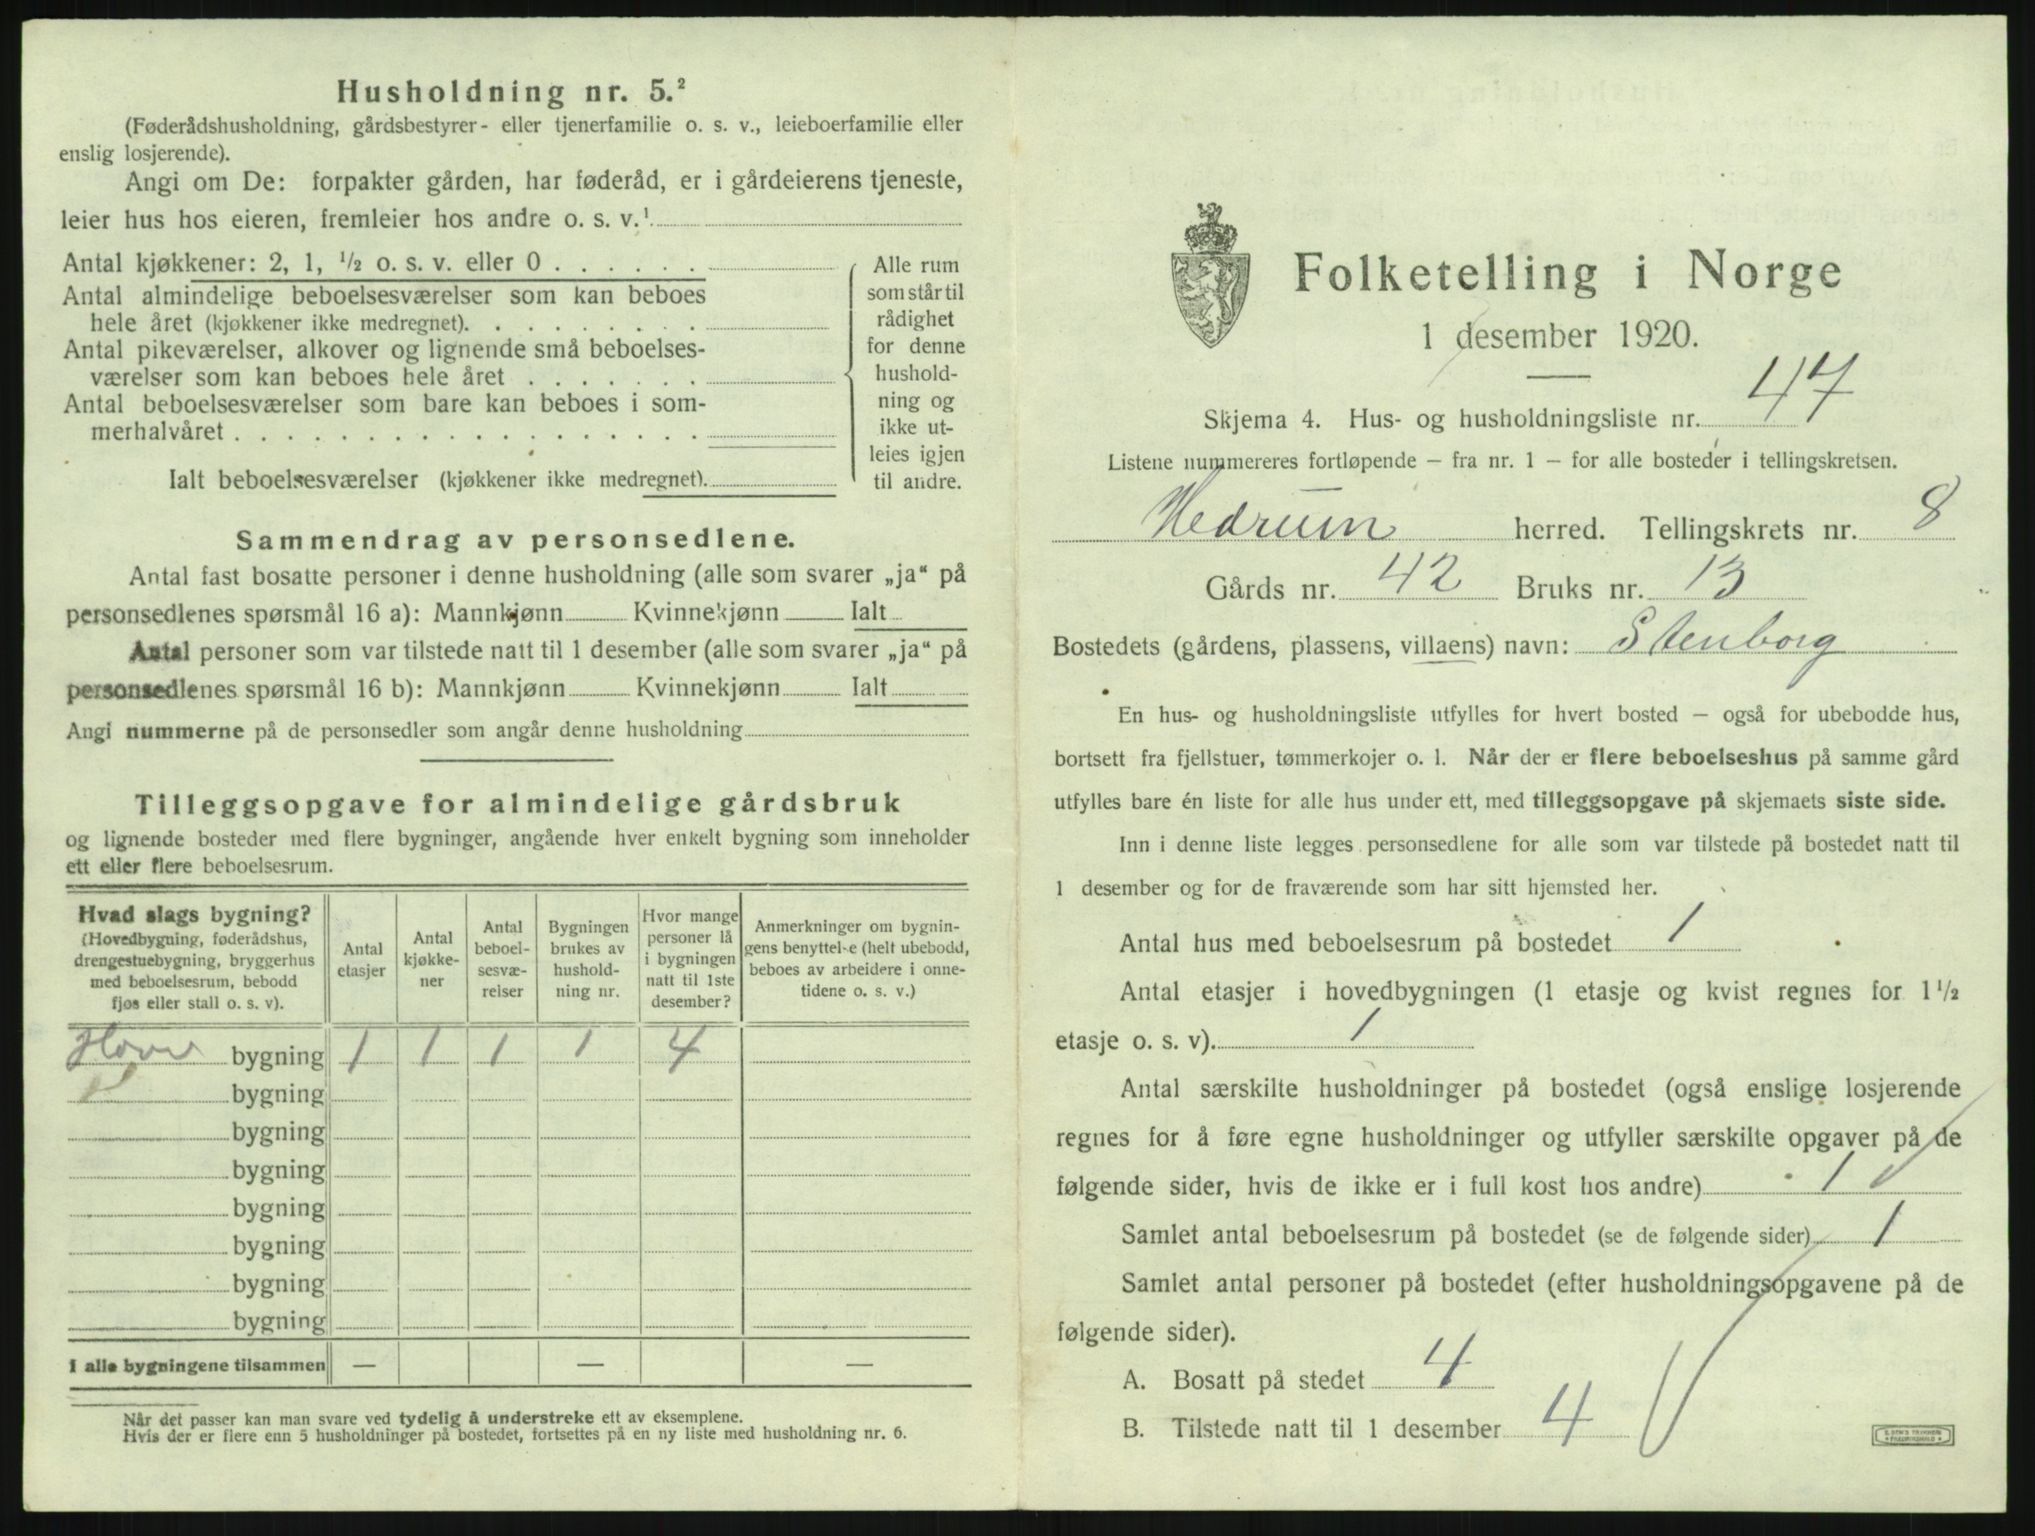 Husholdning nr. 5.²
(Føderådshusholdning, gårdsbestyrer- eller tjenerfamilie o. s. v., leieboerfamilie eller
enslig losjerende).
Angi om De: forpakter gården, har føderåd, er i gårdeierens tjeneste,
leier hus hos eieren, fremleier hos andre o. s. v.¹
Antal kjøkkener: 2, 1, ½ o. s. v. eller 0 . . . . . .
Antal almindelige beboelsesværelser som kan beboes
hele året (kjøkkener ikke medregnet). . . . . . . . .
Antal pikeværelser, alkover og lignende små beboelses-
værelser som kan beboes hele året . . . . . . .
Antal beboelsesværelser som bare kan beboes i som-
merhalvåret . . . . . . . . . . . . . . . . . .
Ialt beboelsesværelser (kjøkkener ikke medregnet).
Alle rum
som står til
rådighet
for denne
hushold-
ning og
ikke ut-
leies igjen
til andre.
Sammendrag av personsedlene.
Antal fast bosatte personer i denne husholdning (alle som svarer „ja“ på
personsedlenes spørsmål 16 a): Mannkjønn Kvinnekjønn Ialt
Antal personer som var tilstede natt til 1 desember (alle som svarer „ja“ på
personsedlenes spørsmål 16 b): Mannkjønn Kvinnekjønn Ialt
Angi nummerne på de personsedler som angår denne husholdning
Tilleggsopgave for almindelige gårdsbruk
og lignende bosteder med flere bygninger, angående hver enkelt bygning som inneholder
ett eller flere beboelsesrum.
Hvad slags bygning?
(Hovedbygning, føderådshus,
drengestuebygning, bryggerhus
med beboelsesrum, bebodd
fjøs eller stall o. s. v).
Antal
etasjer
Antal
kjøkke-
ner
Antal
beboel-
sesvæ-
relser
Bygningen
brukes av
hushold-
ning nr.
Hvor mange
personer lå
i bygningen
natt til 1ste
desember?
Anmerkninger om bygnin-
gens benyttelse (helt ubebodd,
beboes av arbeidere i onne-
tidene o. s. v.)
bygning 1 1 1 1 4
bygning
bygning
bygning
bygning
bygning
bygning
bygning
I alle bygningene tilsammen — — —
Når det passer kan man svare ved tydelig å understreke ett av eksemplene.
Hvis der er flere enn 5 husholdninger på bostedet, fortsettes på en ny liste med husholdning nr. 6.
Folketelling i Norge
1 desember 1920.
Skjema 4. Hus- og husholdningsliste nr. 47
Listene nummereres fortløpende — fra nr. 1 — for alle bosteder i tellingskretsen.
Hedrum herred. Tellingskrets nr. 8
Gårds nr. 42 Bruks nr. 13
Bostedets (gårdens, plassens, villaens) navn: Stenborg
En hus- og husholdningsliste utfylles for hvert bosted — også for ubebodde hus,
bortsett fra fjellstuer, tømmerkojer o. l. Når der er flere beboelseshus på samme gård
utfylles bare én liste for alle hus under ett, med tilleggsopgave på skjemaets siste side.
Inn i denne liste legges personsedlene for alle som var tilstede på bostedet natt til
1 desember og for de fraværende som har sitt hjemsted her.
Antal hus med beboelsesrum på bostedet 1
Antal etasjer i hovedbygningen (1 etasje og kvist regnes for 1½
etasje o. s. v). 1
Antal særskilte husholdninger på bostedet (også enslige losjerende
regnes for å føre egne husholdninger og utfyller særskilte opgaver på de
følgende sider, hvis de ikke er i full kost hos andre) 1
Samlet antal beboelsesrum på bostedet (se de følgende sider) 1
Samlet antal personer på bostedet (efter husholdningsopgavene på de
følgende sider).
A. Bosatt på stedet 4
B. Tilstede natt til 1 desember 4